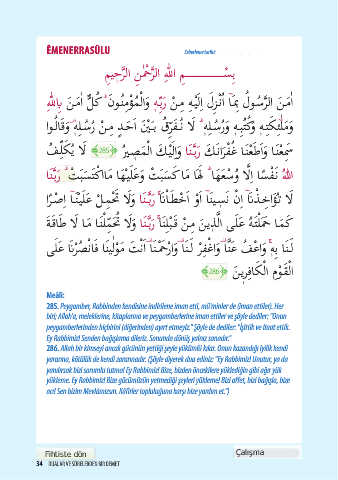 ÊMENERRASÛLU
بِسْمِ اللهِ الرَّحْمٰنِ الرَّحِيمِ
اٰمَنَ الرَّسُولُ بِمَٓا اُنْزِلَ اِلَيْهِ مِنْ رَبِّهٖ وَالْمُؤْمِنُونَۜ كُلٌّ اٰمَنَ بِاللّٰهِ
وَمَلٰٓئِكَتِهٖ وَكُتُبِهٖ وَرُسُلِهٖۜ لَا نُفَرِّقُ بَيْنَ اَحَدٍ مِنْ رُسُلِهٖ۠ وَقَالُوا
سَمِعْنَا وَاَطَعْنَا غُفْرَانَكَ رَبَّنَا وَاِلَيْكَ الْمَصِيرُ ﴿285﴾ لَا يُكَلِّفُ
اللّٰهُ نَفْسًا اِلَّا وُسْعَهَاۜ لَهَا مَا كَسَبَتْ وَعَلَيْهَا مَا اكْتَسَبَتْۜ رَبَّنَا
لَا تُؤَاخِذْنَٓا اِنْ نَسِينَٓا اَوْ اَخْطَأْنَاۚ رَبَّنَا وَلَا تَحْمِلْ عَلَيْنَٓا اِصْرًا
كَمَا حَمَلْتَهُ عَلَى الَّذِينَ مِنْ قَبْلِنَاۚ رَبَّنَا وَلَا تُحَمِّلْنَا مَا لَا طَاقَةَ
لَنَا بِهٖۚ وَاعْفُ عَنَّا۠ وَاغْفِرْ لَنَا۠ وَارْحَمْنَا۠ اَنْتَ مَوْلٰينَا فَانْصُرْنَا عَلَى
الْقَوْمِ الْكَافِرِينَ ﴿286﴾
Meâli:
285. Peygamber, Rabbinden kendisine indirilene iman etti, mü'minler de (iman ettiler). Her
biri; Allah'a, meleklerine, kitaplarına ve peygamberlerine iman ettiler ve şöyle dediler: "Onun
peygamberlerinden hiçbirini (diğerinden) ayırt etmeyiz." Şöyle de dediler: "İşittik ve itaat ettik.
Ey Rabbimiz! Senden bağışlama dileriz. Sonunda dönüş yalnız sanadır."
286. Allah bir kimseyi ancak gücünün yettiği şeyle yükümlü kılar. Onun kazandığı iyilik kendi
yararına, kötülük de kendi zararınadır. (Şöyle diyerek dua ediniz): "Ey Rabbimiz! Unutur, ya da
yanılırsak bizi sorumlu tutma! Ey Rabbimiz! Bize, bizden öncekilere yüklediğin gibi ağır yük
yükleme. Ey Rabbimiz! Bize gücümüzün yetmediği şeyleri yükleme! Bizi affet, bizi bağışla, bize
acı! Sen bizim Mevlâmızsın. Kâfirler topluluğuna karşı bize yardım et.")
Fihtiste dön
Çalışma
34